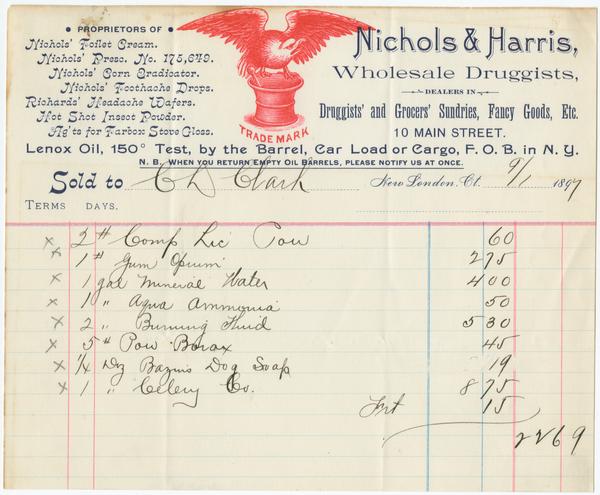 • PROPRIETORS OF •
Nichols' Toilet Cream.
Nichols' Presc. No. 175,649.
Nichols' Corn Eradicator.
Nichols' Toothache Drops.
Richards' Headache Wafers.
Hot Shot Insect Powder.
Ag'ts for Tarbox Stove Gloss.
TRADE MARK
Nichols & Harris,
Wholesale Druggists,
DEALERS IN
Druggists' and Grocers' Sundries, Fancy Goods, Etc.
10 MAIN STREET.
Lenox Oil, 150° Test, by the Barrel, Car Load or Cargo, F. O. B. in N. Y.
N. B. WHEN YOU RETURN EMPTY OIL BARRELS, PLEASE NOTIFY US AT ONCE.
Sold to C D Clark New London, Ct. 9/1 1897
TERMS DAYS.
x 2 # Comp Lic Pow 60
x 1 # Gum Opium 2 75
x 1 gal Mineral Water 4 00
x 1 " Aqua Ammonia 50
x 2 " Burning Fluid 5 30
x 5 # Pow Borax 45
x 1/4 Dz Bazins Dog Soap 19
x 1 " Celery Co. 8 75
Frt 15
22 69